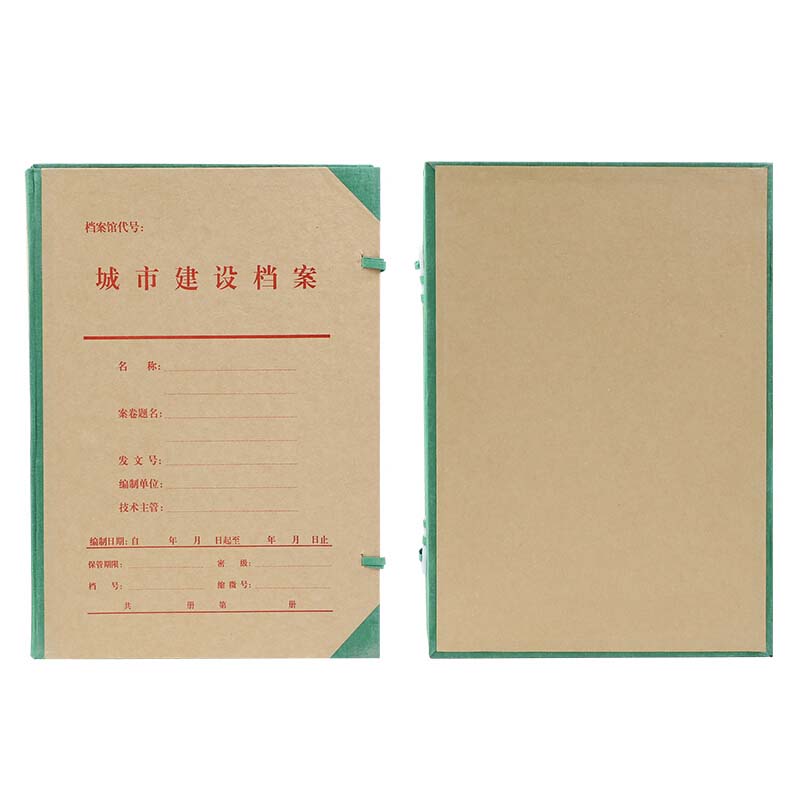 档案馆代号：
城市建设档案
名　称：
案卷题名：
发文号：
编制单位：
技术主管：
编制日期：自　年　月　日起至　年　月　日止
保管期限：　密　级：
档　号：　缩微号：
共　册　第　册